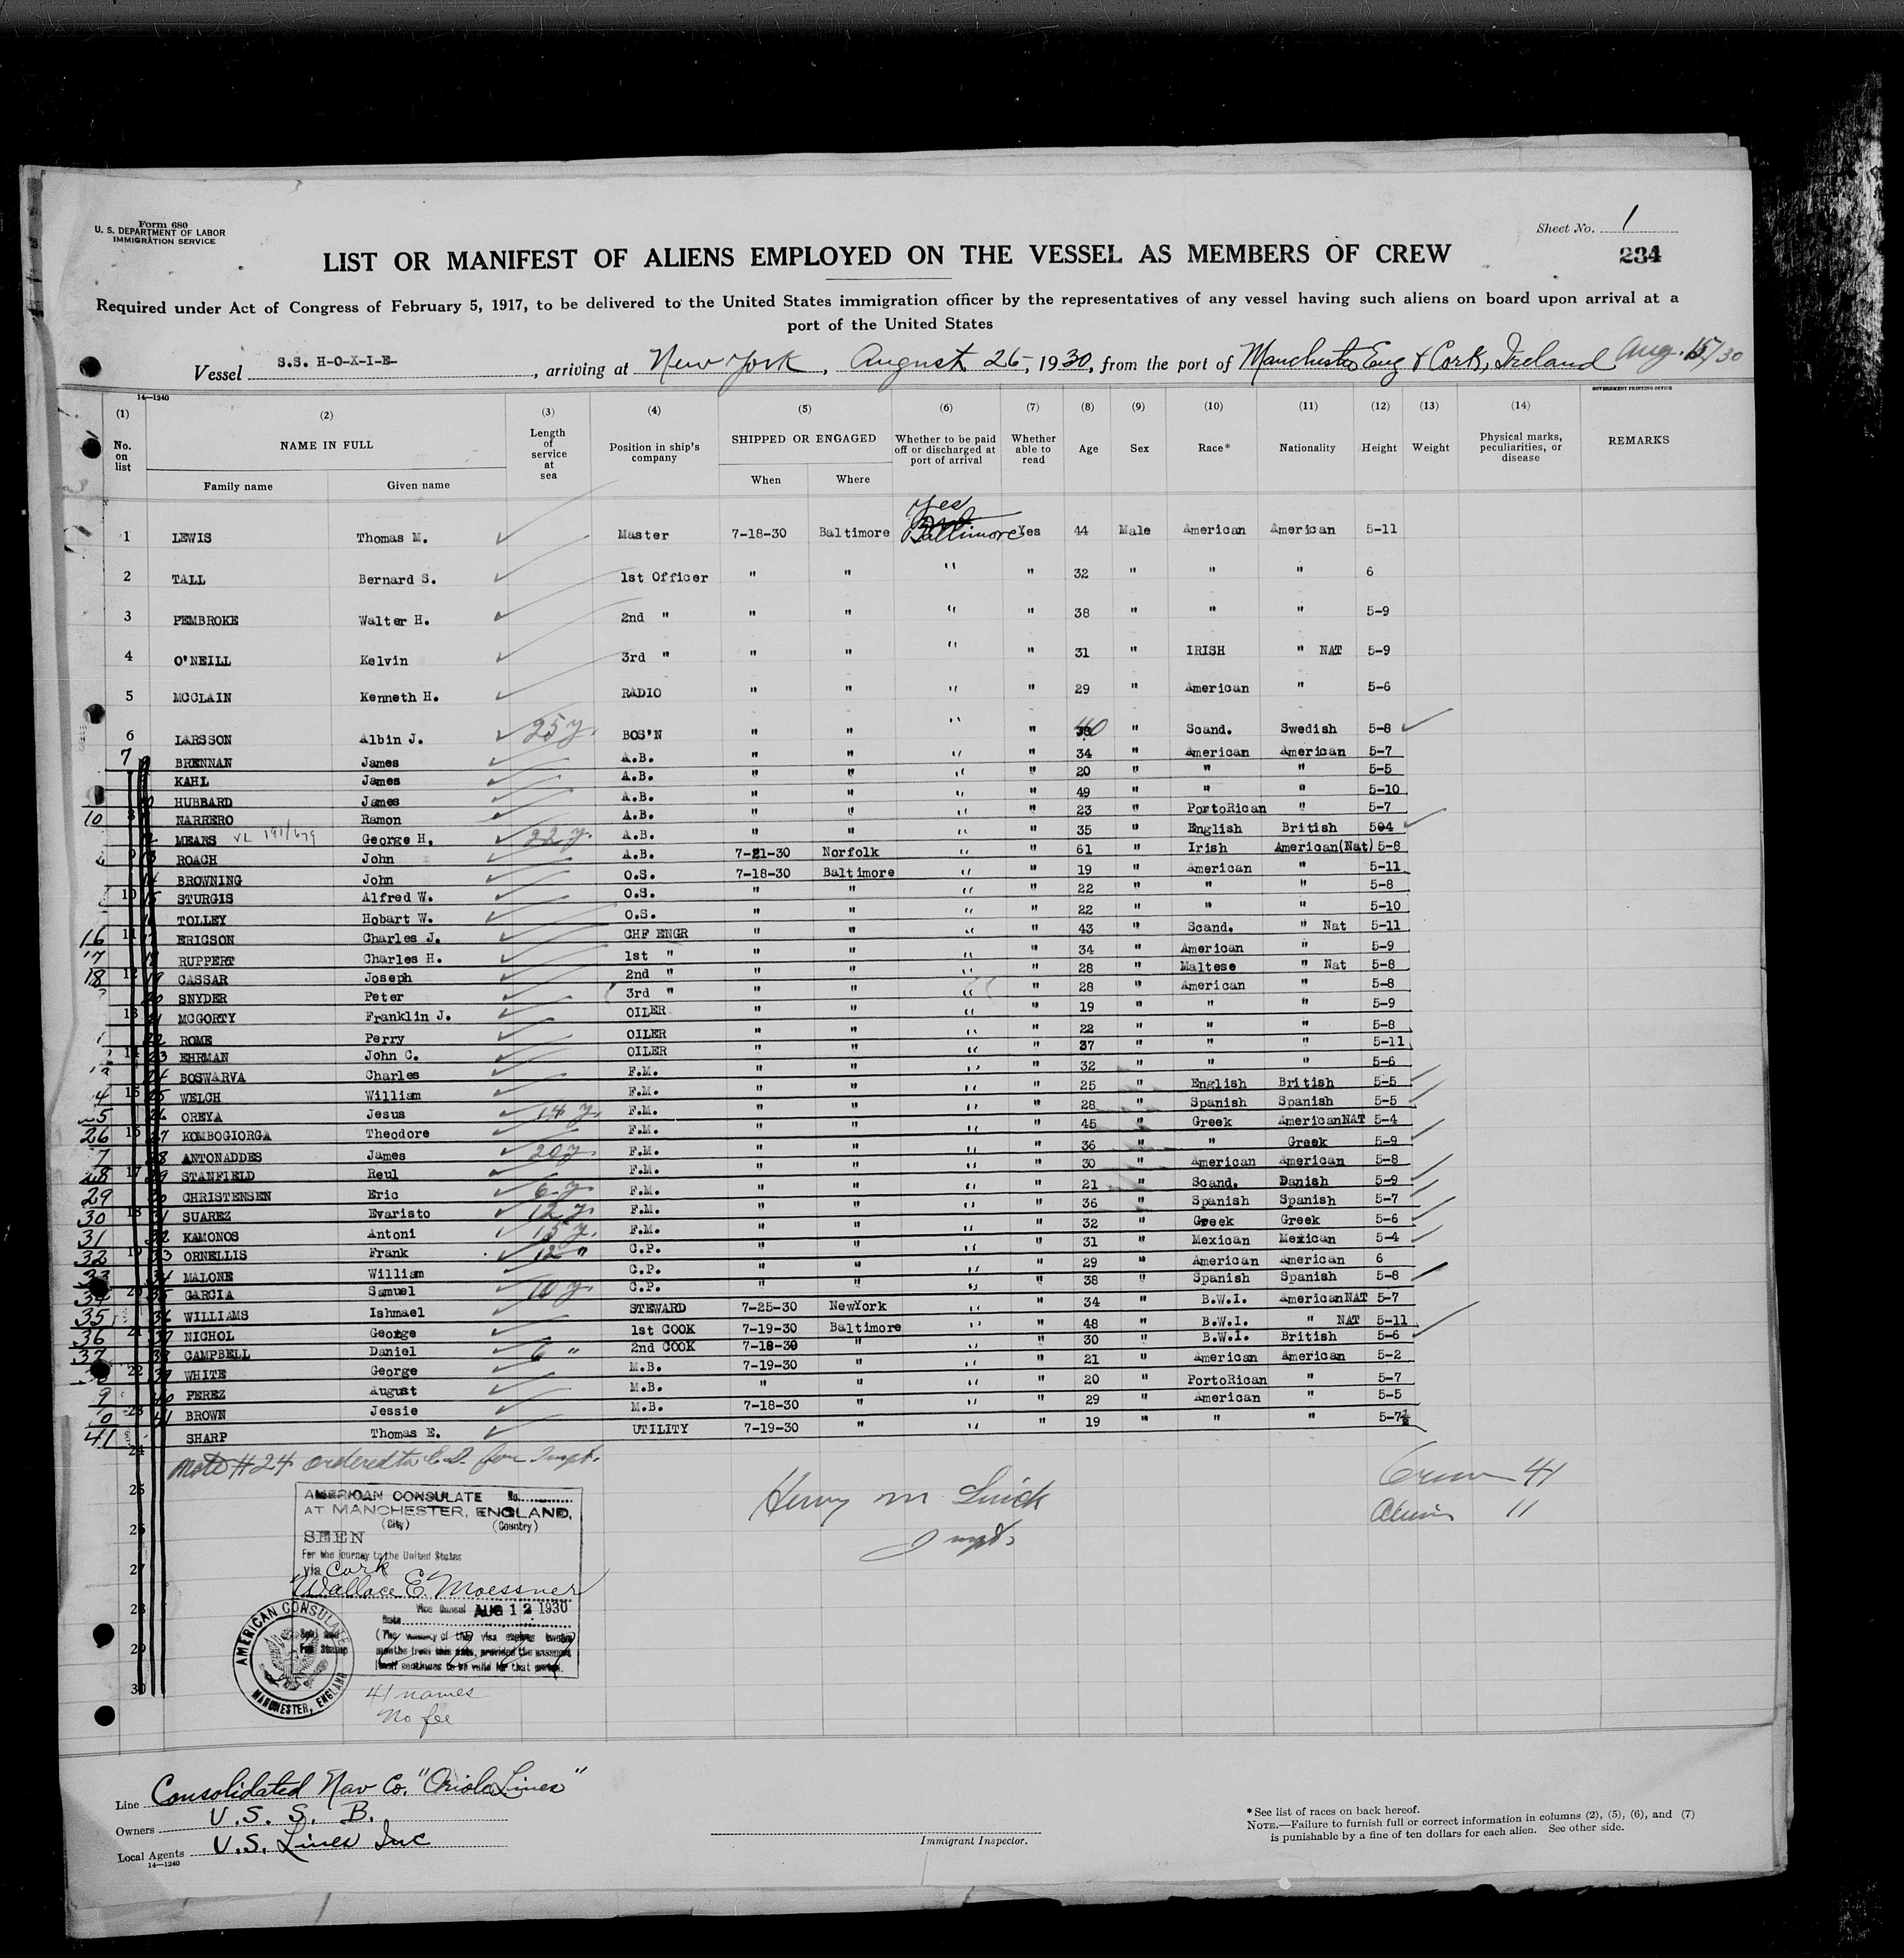 Form 680
U. S. DEPARTMENT OF LABOR
IMMIGRATION SERVICE
Sheet No. 1
LIST OR MANIFEST OF ALIENS EMPLOYED ON THE VESSEL AS MEMBERS OF CREW
234
Required under Act of Congress of February 5, 1917, to be delivered to the United States immigration officer by the representatives of any vessel having such aliens on board upon arrival at a
port of the United States
Vessel S.S. H-O-X-I-E- , arriving at New York , August 26- , 1930, from the port of Manchester Eng & Cork, Ireland Aug. 15/30
14—1240
GOVERNMENT PRINTING OFFICE
(1) (2) (3) (4) (5) (6) (7) (8) (9) (10) (11) (12) (13) (14)
No. on list NAME IN FULL Length of service at sea Position in ship's company SHIPPED OR ENGAGED Whether to be paid off or discharged at port of arrival Whether able to read Age Sex Race* Nationality Height Weight Physical marks, peculiarities, or disease REMARKS
Family name Given name When Where
Yes
1 LEWIS Thomas M. Master 7-18-30 Baltimore Baltimore Yes 44 Male American American 5-11
2 TALL Bernard S. 1st Officer " " " " 32 " " " 6
3 PEMBROKE Walter H. 2nd " " " " " 38 " " " 5-9
4 O'NEILL Kelvin 3rd " " " " " 31 " IRISH " NAT 5-9
5 MCCLAIN Kenneth H. RADIO " " " " 29 " American " 5-6
6 LARSSON Albin J. 25 y. BOS'N " " " " 40 " Scand. Swedish 5-8
7 BRENNAN James A.B. " " " " 34 " American American 5-7
KAHL James A.B. " " " " 20 " " " 5-5
HUBBARD James A.B. " " " " 49 " " " 5-10
10 NARRERO Ramon A.B. " " " " 23 " PortoRican " 5-7
MEARS VL 191/679 George H. 22 y. A.B. " " " " 35 " English British 504
ROACH John A.B. 7-21-30 Norfolk " " 61 " Irish American(Nat) 5-8
BROWNING John O.S. 7-18-30 Baltimore " " 19 " American " 5-11
STURGIS Alfred W. O.S. " " " " 22 " " " 5-8
TOLLEY Hobart W. O.S. " " " " 22 " " " 5-10
16 ERICSON Charles J. CHF ENGR " " " " 43 " Scand. " Nat 5-11
17 RUPPERT Charles H. 1st " " " " " 34 " American " 5-9
18 CASSAR Joseph 2nd " " " " " 28 " Maltese " Nat 5-8
SNYDER Peter 3rd " " " " " 28 " American " 5-8
MCGORTY Franklin J. OILER " " " " 19 " " " 5-9
ROME Perry OILER " " " " 22 " " " 5-8
EHRMAN John C. OILER " " " " 37 " " " 5-11
BOSWARVA Charles F.M. " " " " 32 " " " 5-6
4 WELCH William F.M. " " " " 25 " English British 5-5
5 OREYA Jesus 14 y. F.M. " " " " 28 " Spanish Spanish 5-5
26 KOMBOGIORGA Theodore F.M. " " " " 45 " Greek AmericanNAT 5-4
7 ANTONADDES James 20 y. F.M. " " " " 36 " " Greek 5-9
28 STANFIELD Reul F.M. " " " " 30 " American American 5-8
29 CHRISTENSEN Eric 6 y. F.M. " " " " 21 " Scand. Danish 5-9
30 SUAREZ Evaristo 12 y. F.M. " " " " 36 " Spanish Spanish 5-7
31 KAMONOS Antoni 15 y. F.M. " " " " 32 " Greek Greek 5-6
32 ORNELLIS Frank 12 " C.P. " " " " 31 " Mexican Mexican 5-4
33 MALONE William C.P. " " " " 29 " American American 6
34 GARCIA Samuel 10 y. C.P. " " " " 38 " Spanish Spanish 5-8
35 WILLIAMS Ishmael STEWARD 7-25-30 NewYork " " 34 " B.W.I. AmericanNAT 5-7
36 NICHOL George 1st COOK 7-19-30 Baltimore " " 48 " B.W.I. " NAT 5-11
37 CAMPBELL Daniel 6 " 2nd COOK 7-18-30 " " " 30 " B.W.I. British 5-6
WHITE George M.B. 7-19-30 " " " 21 " American American 5-2
9 PEREZ August M.B. " " " " 20 " PortoRican " 5-7
0 BROWN Jessie M.B. 7-18-30 " " " 29 " American " 5-5
41 SHARP Thomas E. UTILITY 7-19-30 " " " 19 " " " 5-7½
24
Note #24 ordered to E.I. for Inspt.
Crew 41
Aliens 11
Henry M
Inspt.
25
AMERICAN CONSULATE No.
AT MANCHESTER, ENGLAND,
(City) (Country)
SEEN
For the journey to the United States
via Cork
Wallace E. Moessner
Vice Consul AUG 12 1930
Date
(The validity of this visa expires twelve
months from this date, provided the passport
itself continues to be valid for that period.
AMERICAN CONSULATE
MANCHESTER, ENGLAND
27
28
29
30
41 names
No fee
Line Consolidated Nav Co. "Oriole Lines"
Owners U.S.S.B.
Local Agents U.S. Lines Inc
14—1240
Immigrant Inspector.
*See list of races on back hereof.
NOTE.—Failure to furnish full or correct information in columns (2), (5), (6), and (7)
is punishable by a fine of ten dollars for each alien. See other side.